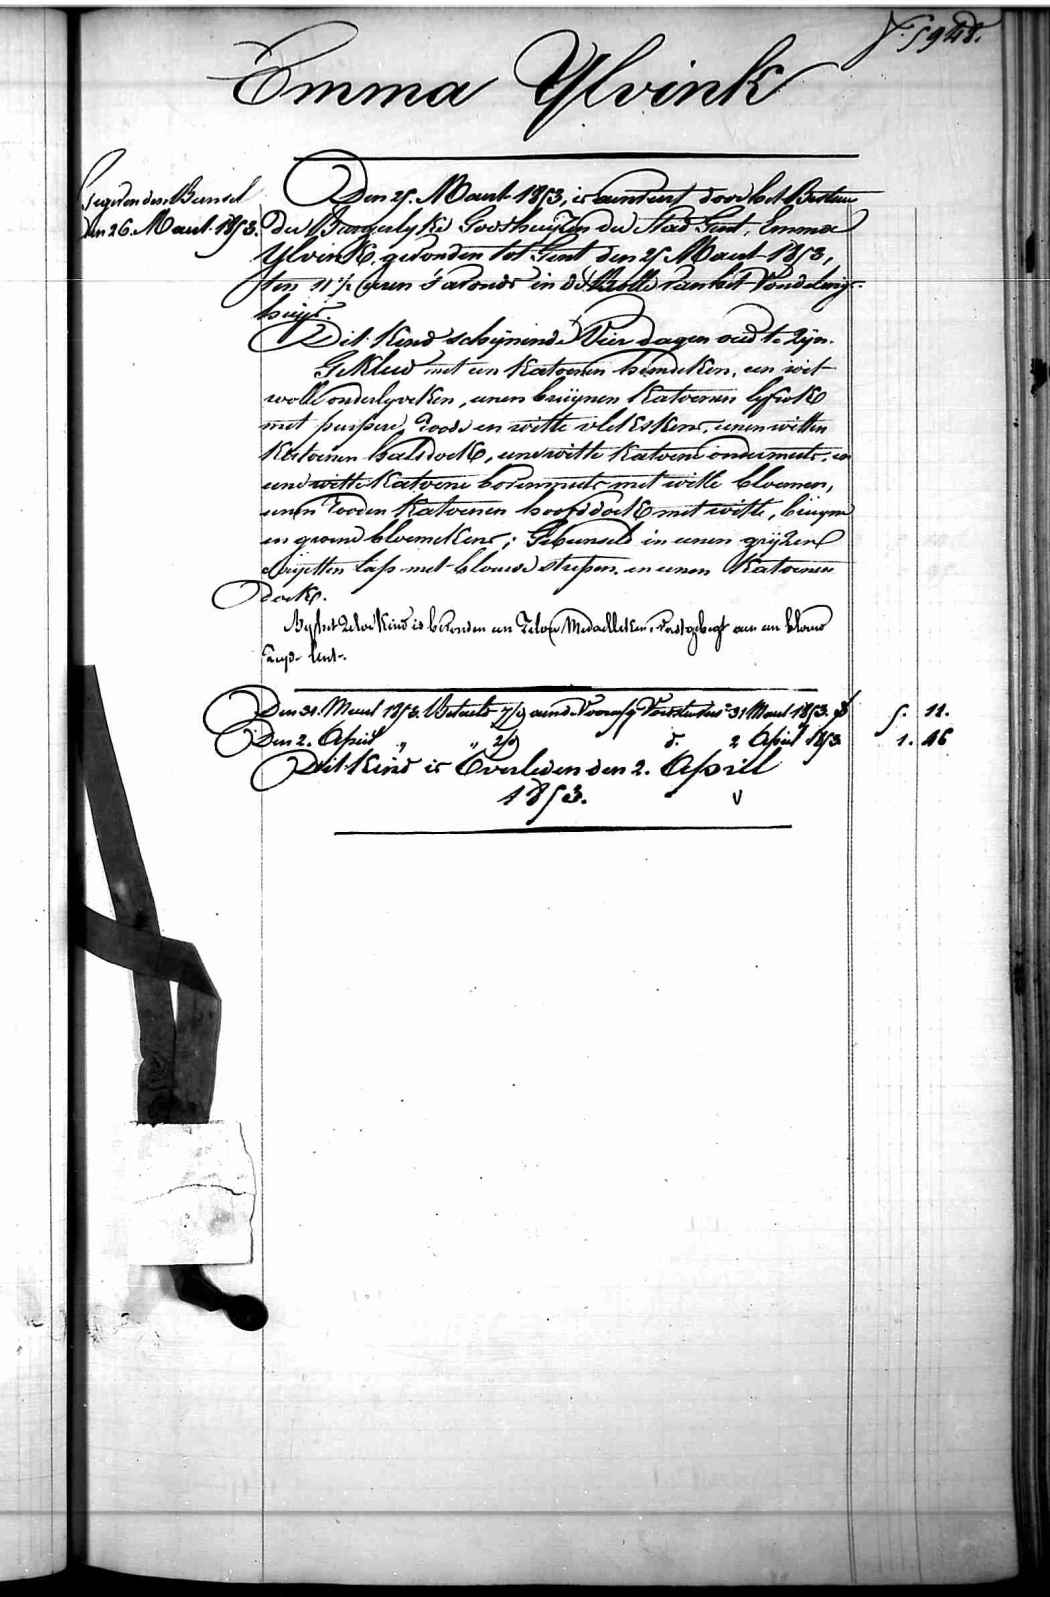 F. 5948.
Emma Ylvink
Den 25. Maert 1853, is aenveerd door het Bestuer
der Burgerlyke Godshuyzen der Stad Gent, Emma
Ylvink, gevonden tot Gent den 25 Maert 1853,
ten 11 ½ uren s'avonds in de Rolle van het Vondeling-
huys.
Gegeven den Bunsel
den 26. Maert. 1853.
Dit Kind schynende Vier dagen oud te zyn.
Gekleed met een Katoenen hemdeken, een wit
wolle onderlyveken, eenen bruynen Katoenen lyfrok
met purpere, roode en witte vlekskens, eenen witten
Katoenen halsdoek, eene witte Katoene ondermuts, en
eene witte Katoene bovenmuts met witte bloemen,
eenen rooden Katoenen hoofddoek met witte, bruyne
en groene bloemekens; Gebunseld in eenen gryzen
lap met blauwe strepen, en eenen Katoenen
doek.
By het zelve Kind is bevonden een Medailleken, vastgehegt aen een blauw
lint.
Den 31. Maert 1853. 31 Maert 1853. 5. 11.
Den 2. April " " 2/9 d. 2 April 1853 1. 46
Dit Kind is Overleden den 2. April
1853.